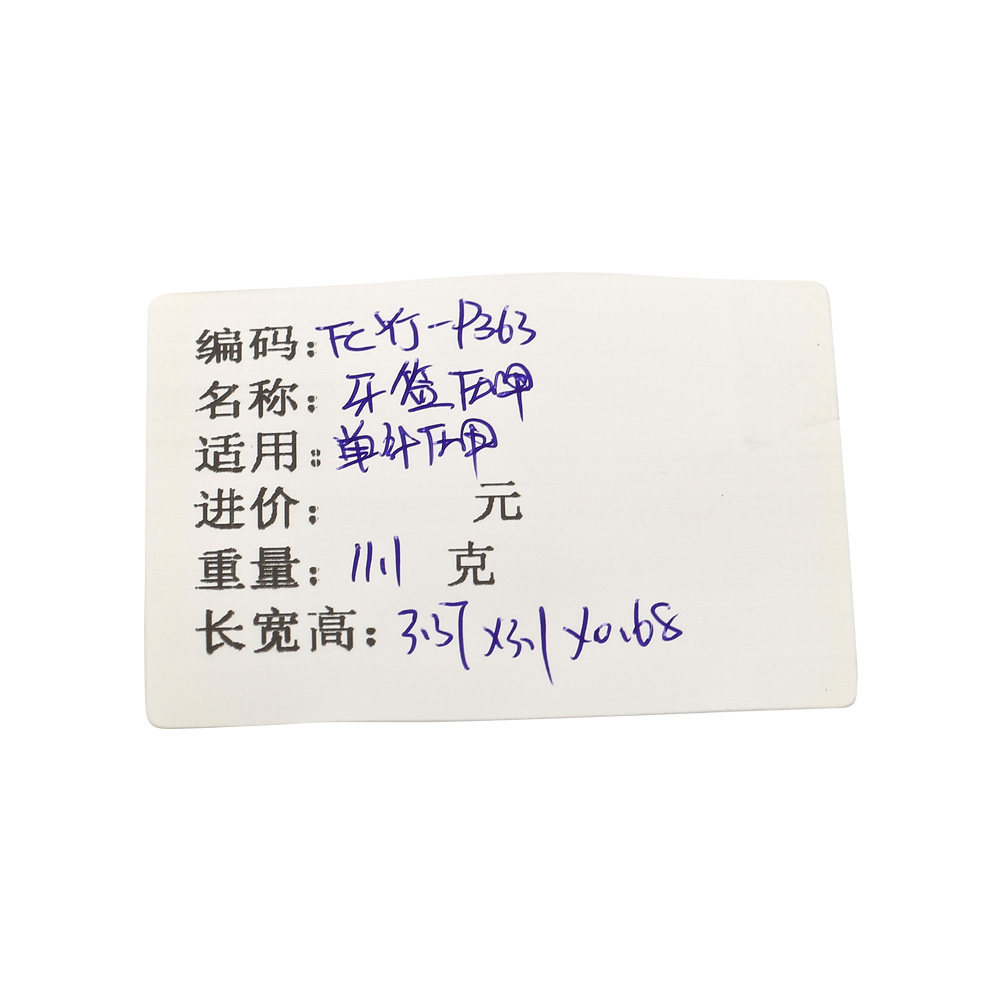 编码:FCYJ-P363
名称: 牙签压呷
适用: 单针压呷
进价: 元
重量: 11.1 克
长宽高: 3.37x3.1x0.68